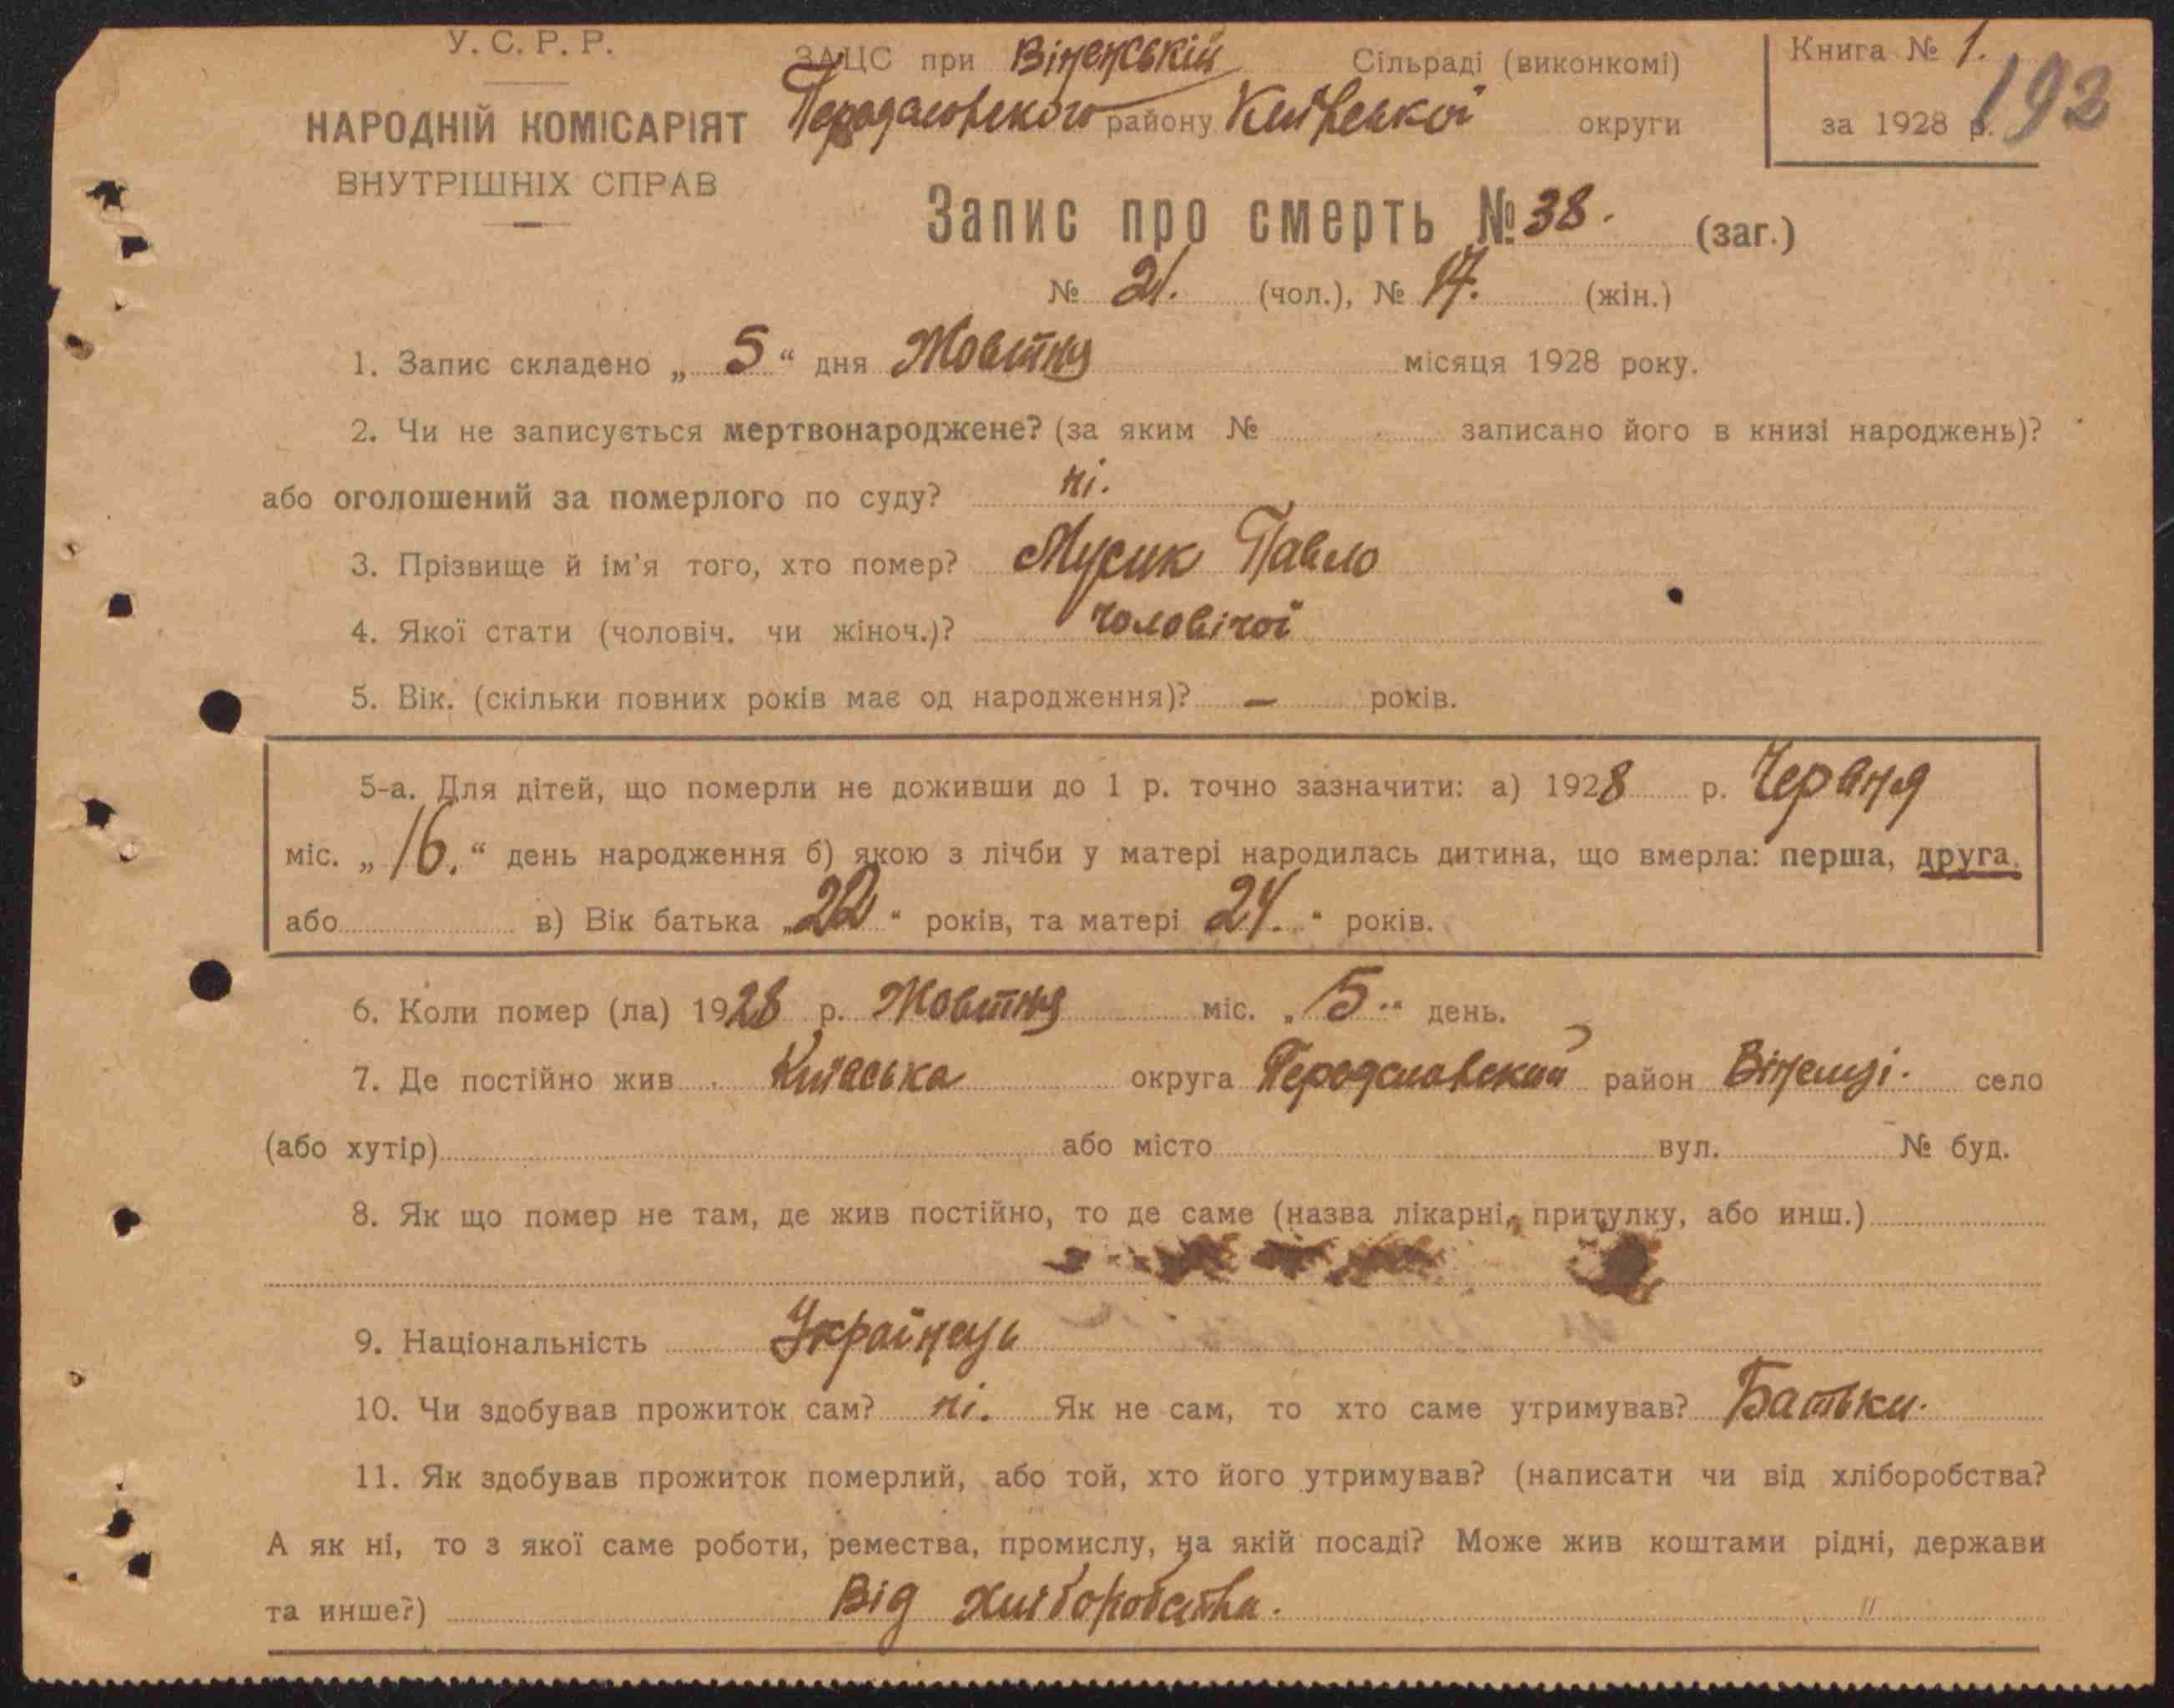 У.С.Р.Р.
НАРОДНІЙ КОМІСАРІЯТ
ВНУТРІШНІХ СПРАВ
ЗАЦС при Віненській Сільраді (виконкомі)
району Київської округи
Книга № 1.
за 1928 р.
192
Запис про смерть № 38. (заг.)
№ 21. (чол.), № 17. (жін.)
1. Запис складено „ 5 “ дня Жовтня місяця 1928 року.
2. Чи не записується мертвонароджене? (за яким № записано його в книзі народжень)?
або оголошений за померлого по суду? ні.
3. Прізвище й ім’я того, хто помер? Мусик Павло
4. Якої стати (чоловіч. чи жіноч.)? чоловічої
5. Вік. (скільки повних років має од народження)? — років.
5-а. Для дітей, що померли не доживши до 1 р. точно зазначити: а) 1928 р. Червня
міс. „ 16. “ день народження б) якою з лічби у матері народилась дитина, що вмерла: перша, друга,
або в) Вік батька „ 22 “ років, та матері 24. “ років.
6. Коли помер (ла) 1928 р. Жовтня міс. „ 5 “ день.
7. Де постійно жив Київська округа район Віненці. село
(або хутір) або місто вул. № буд.
8. Як що помер не там, де жив постійно, то де саме (назва лікарні, притулку, або инш.)
9. Національність Українець
10. Чи здобував прожиток сам? ні. Як не сам, то хто саме утримував? Батьки.
11. Як здобував прожиток померлий, або той, хто його утримував? (написати чи від хліборобства?
А як ні, то з якої саме роботи, ремества, промислу, на якій посаді? Може жив коштами рідні, держави
та инше?) Від хліборобства.